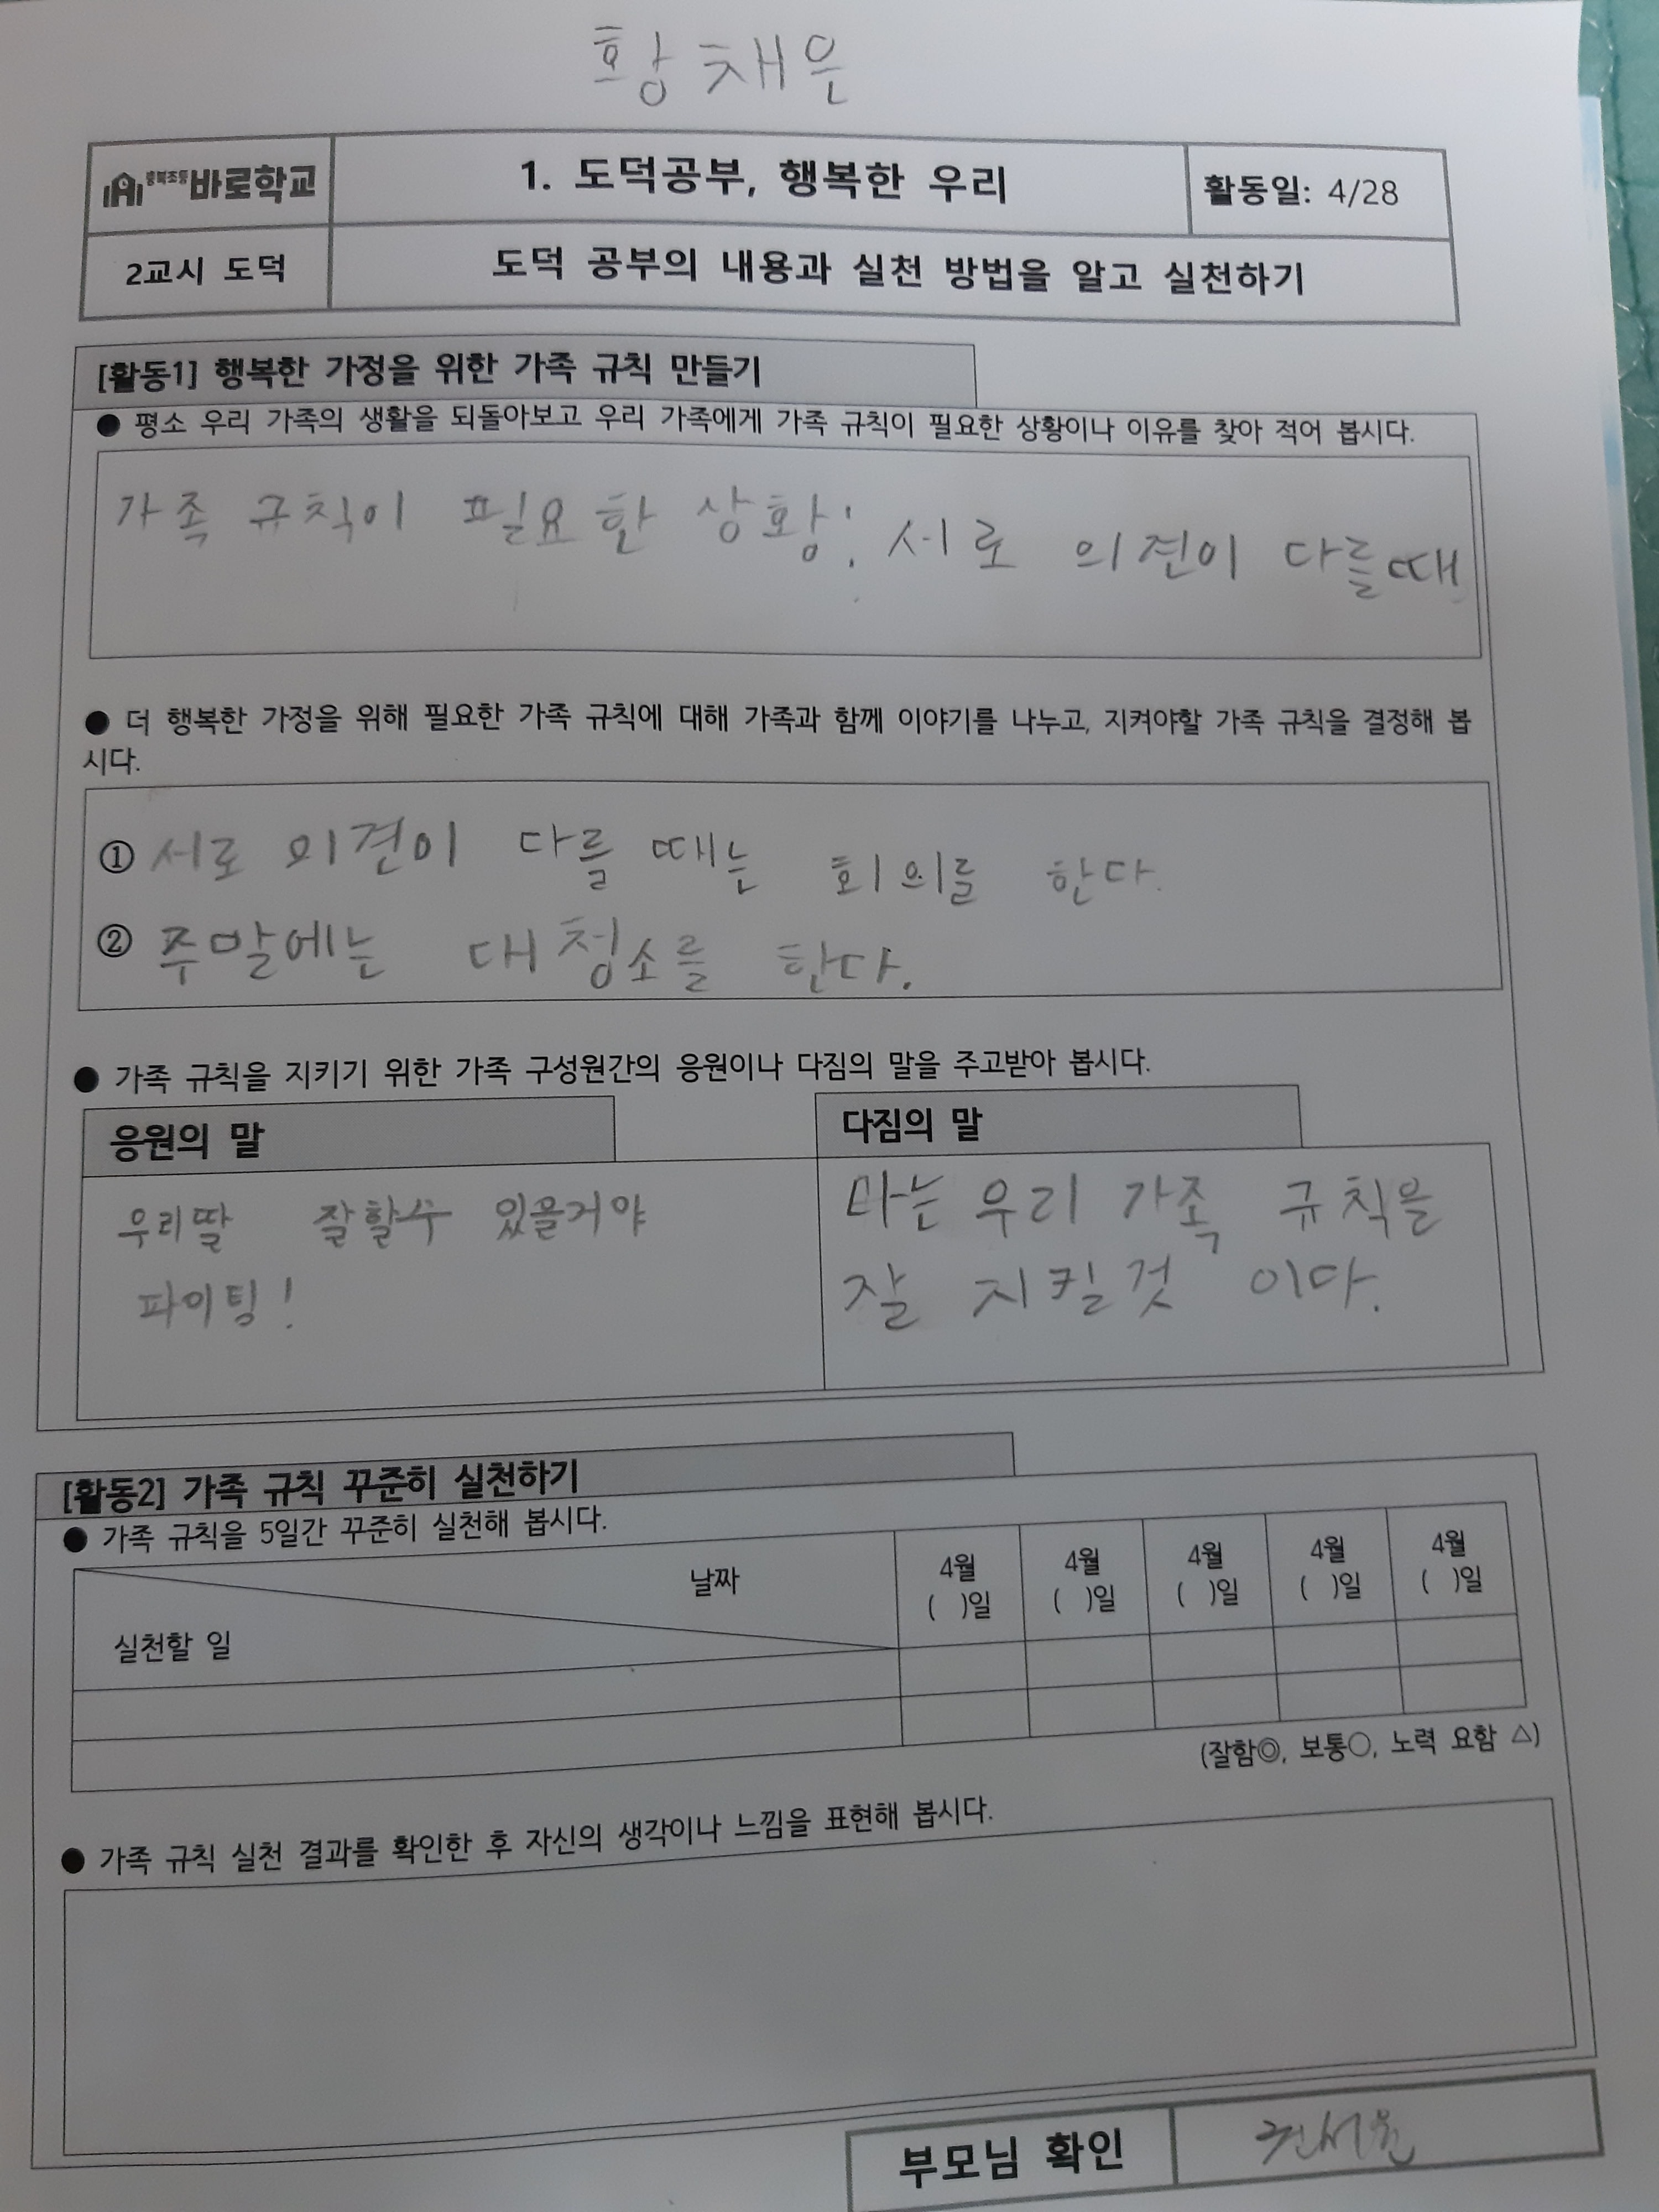 황채은
충북초등 바로학교
1. 도덕공부, 행복한 우리
활동일: 4/28
2교시 도덕
도덕 공부의 내용과 실천 방법을 알고 실천하기
[활동1] 행복한 가정을 위한 가족 규칙 만들기
● 평소 우리 가족의 생활을 되돌아보고 우리 가족에게 가족 규칙이 필요한 상황이나 이유를 찾아 적어 봅시다.
가족 규칙이 필요한 상황: 서로 의견이 다를때
● 더 행복한 가정을 위해 필요한 가족 규칙에 대해 가족과 함께 이야기를 나누고, 지켜야할 가족 규칙을 결정해 봅
시다.
① 서로 의견이 다를 때는 회의를 한다.
② 주말에는 대청소를 한다.
● 가족 규칙을 지키기 위한 가족 구성원간의 응원이나 다짐의 말을 주고받아 봅시다.
응원의 말
우리딸 잘할수 있을거야
파이팅!
다짐의 말
나는 우리 가족 규칙을
잘 지킬것 이다.
[활동2] 가족 규칙 꾸준히 실천하기
● 가족 규칙을 5일간 꾸준히 실천해 봅시다.
날짜
실천할 일
4월 4월 4월 4월 4월
( )일 ( )일 ( )일 ( )일 ( )일
(잘함◎, 보통○, 노력 요함 △)
● 가족 규칙 실천 결과를 확인한 후 자신의 생각이나 느낌을 표현해 봅시다.
부모님 확인